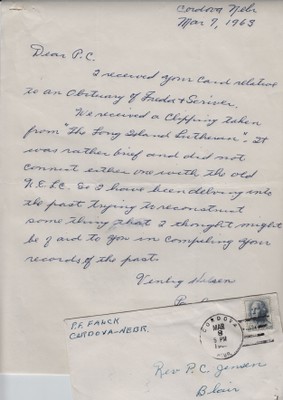 Cordova Nebr
Mar 7, 1963
Dear P.C.
I received your Card relative
to an Obituary of Freda & Scriver.
We received a Clipping taken
from "The Long Island Lutheran". It
was rather brief and did not
connect either one with the old
U.E.L.C. So I have been delving into
the past trying to reconstruct
some thing that I thought might
be of aid to you in compiling your
records of the past.
Venlig Hilsen
P.F. FALCK
CORDOVA-NEBR.
CORDOVA
MAR
8
PM
Rev P.C. Jensen
Blair